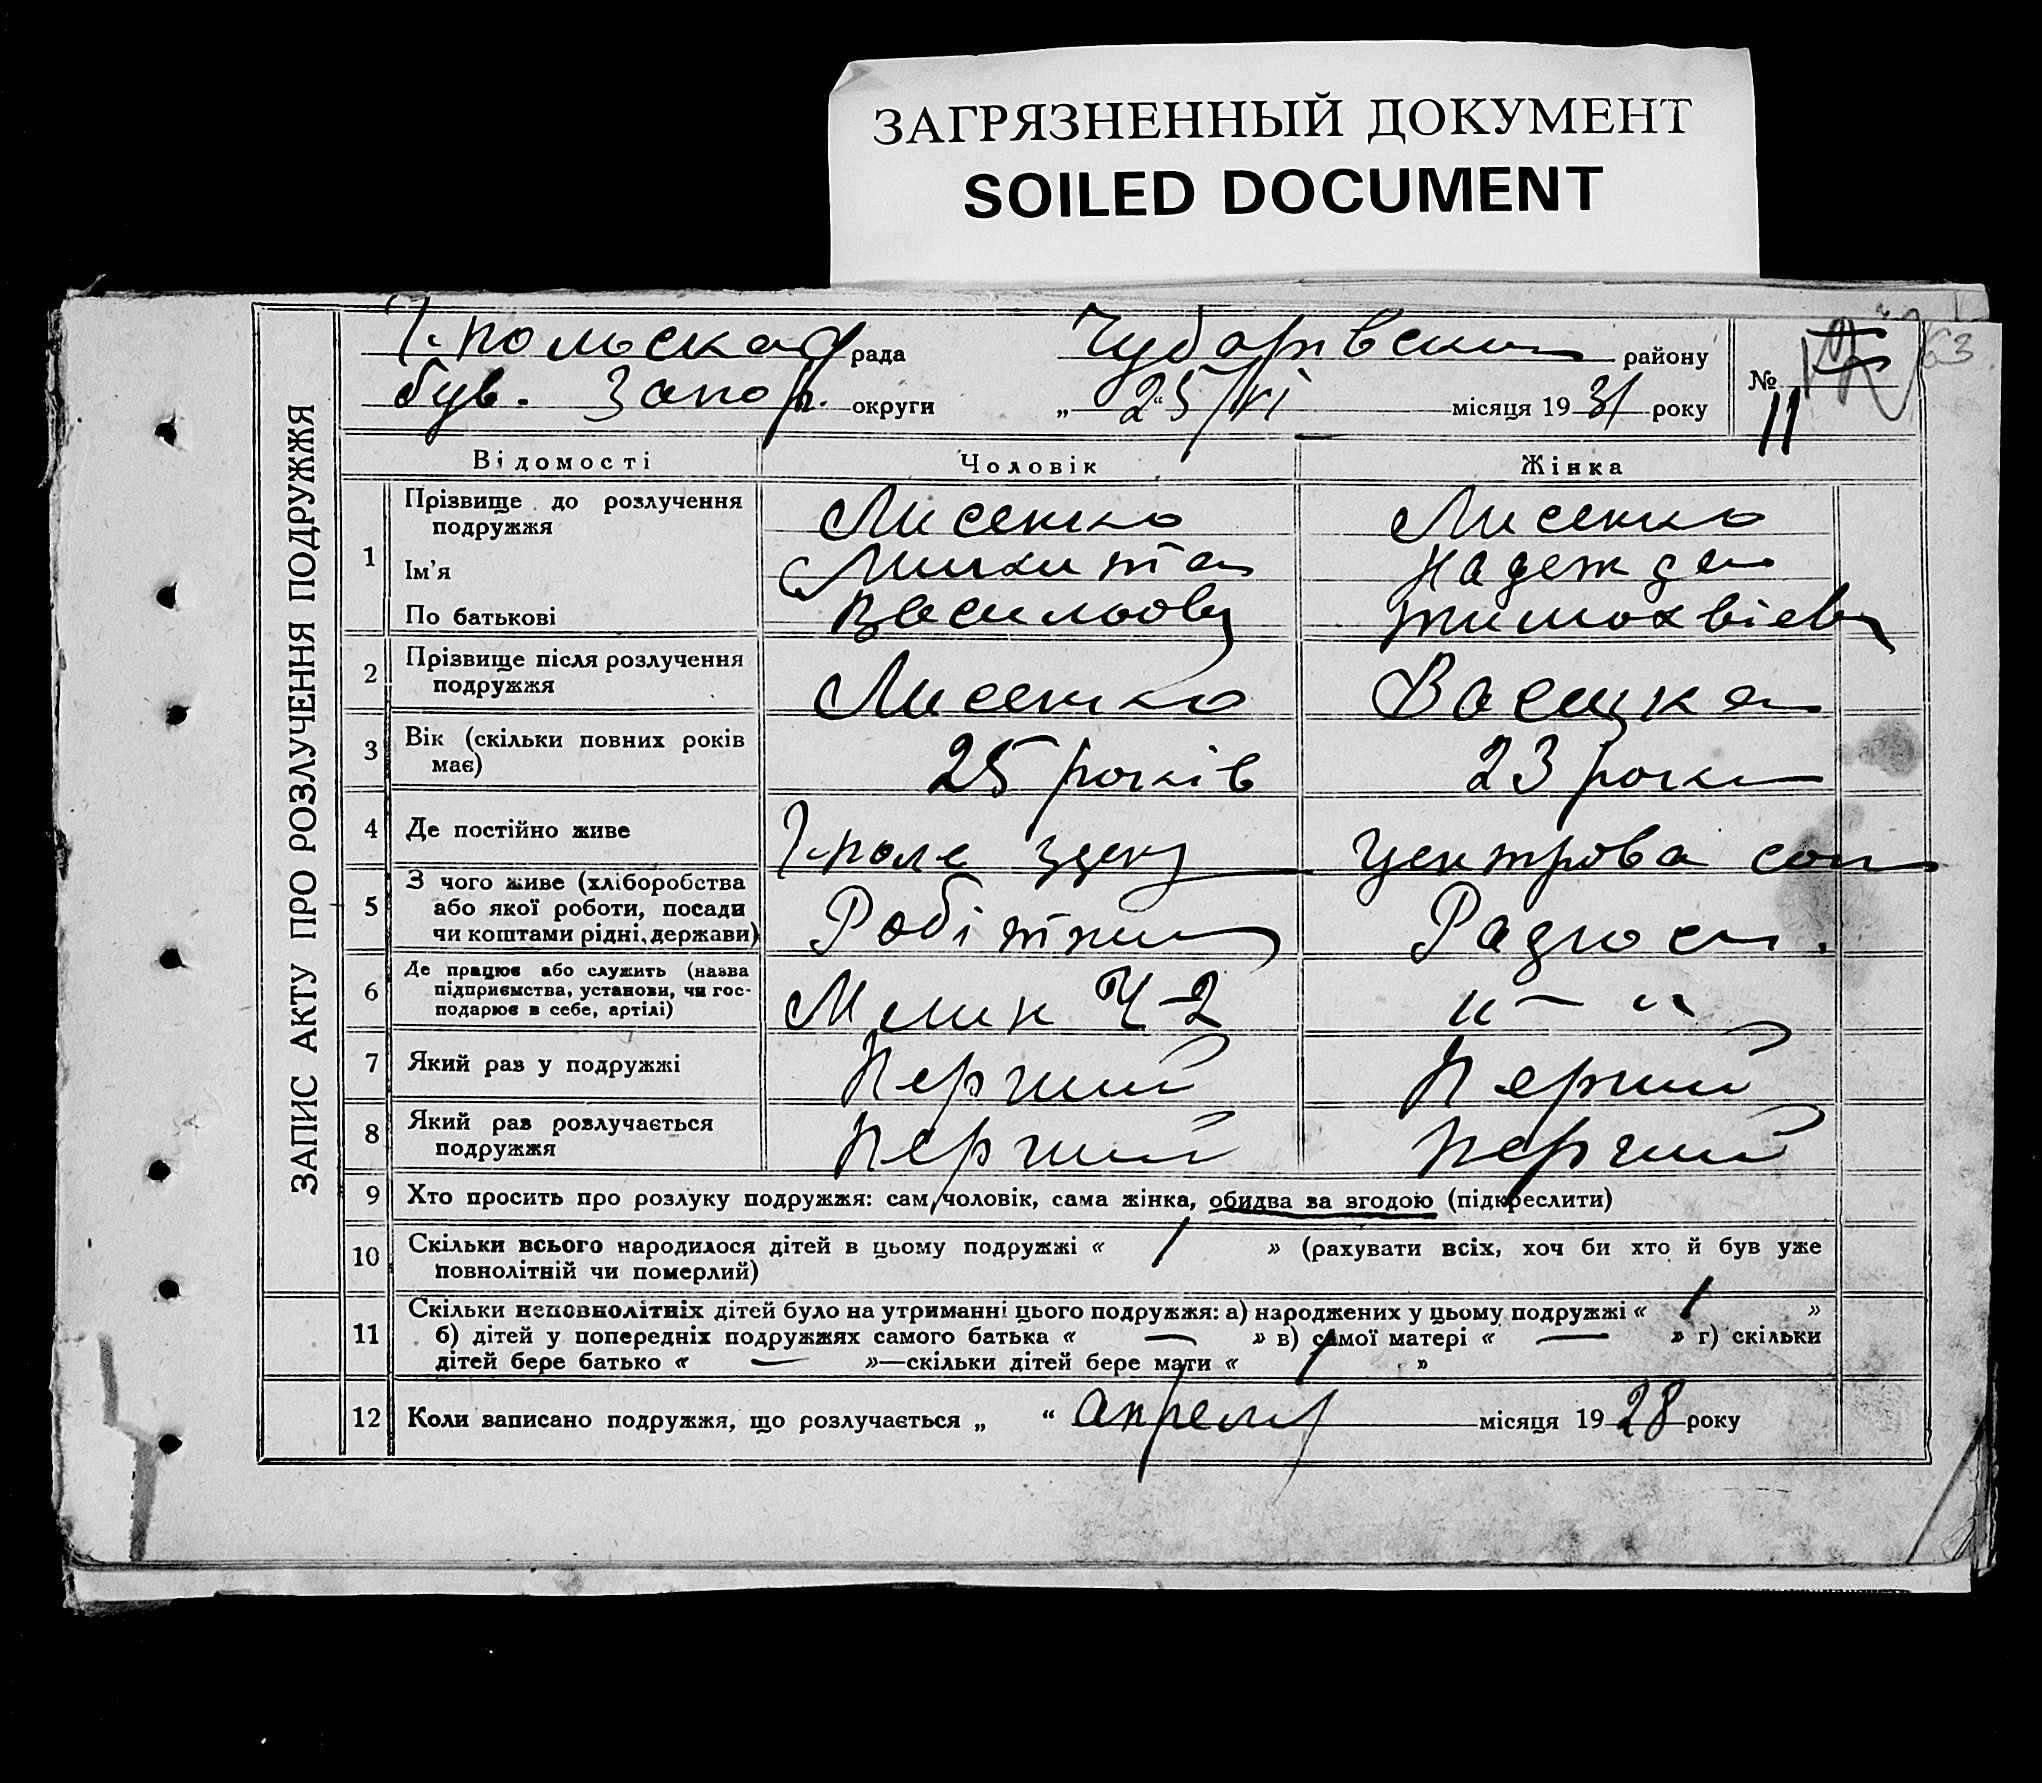 ЗАГРЯЗНЕННЫЙ ДОКУМЕНТ
SOILED DOCUMENT
ЗАПИС АКТУ ПРО РОЗЛУЧЕННЯ ПОДРУЖЖЯ
Г-польская рада Чубарівскии району № 63
був. Запор. округи „25/VI місяця 1931 року 11
Відомості Чоловік Жінка
1 Прізвище до розлучення подружжя Лисенко Лисенко
Ім'я Микита Надежда
По батькові Васильов Тимохвіев
2 Прізвище після розлучення подружжя Лисенко
3 Вік (скільки повних років має) 25 років 23 роки
4 Де постійно живе Г-поле
5 З чого живе (хліборобства або якої роботи, посади чи коштами рідні, держави) Робітник
6 Де працює або служить (назва підприємства, установи, чи господарює в себе, артілі) Млин Ч-2 " — "
7 Який раз у подружжі Перчий Перчий
8 Який раз розлучається подружжя Перчий Перчий
9 Хто просить про розлуку подружжя: сам чоловік, сама жінка, обидва за згодою (підкреслити)
10 Скільки всього народилося дітей в цьому подружжі « 1 » (рахувати всіх, хоч би хто й був уже
повнолітній чи померлий)
11 Скільки неповнолітніх дітей було на утриманні цього подружжя: а) народжених у цьому подружжі « 1 »
б) дітей у попередніх подружжях самого батька « — » в) самої матері « — » г) скільки
дітей бере батько « — »—скільки дітей бере мати « 1 »
12 Коли записано подружжя, що розлучається „ “ апреля місяця 1928 року